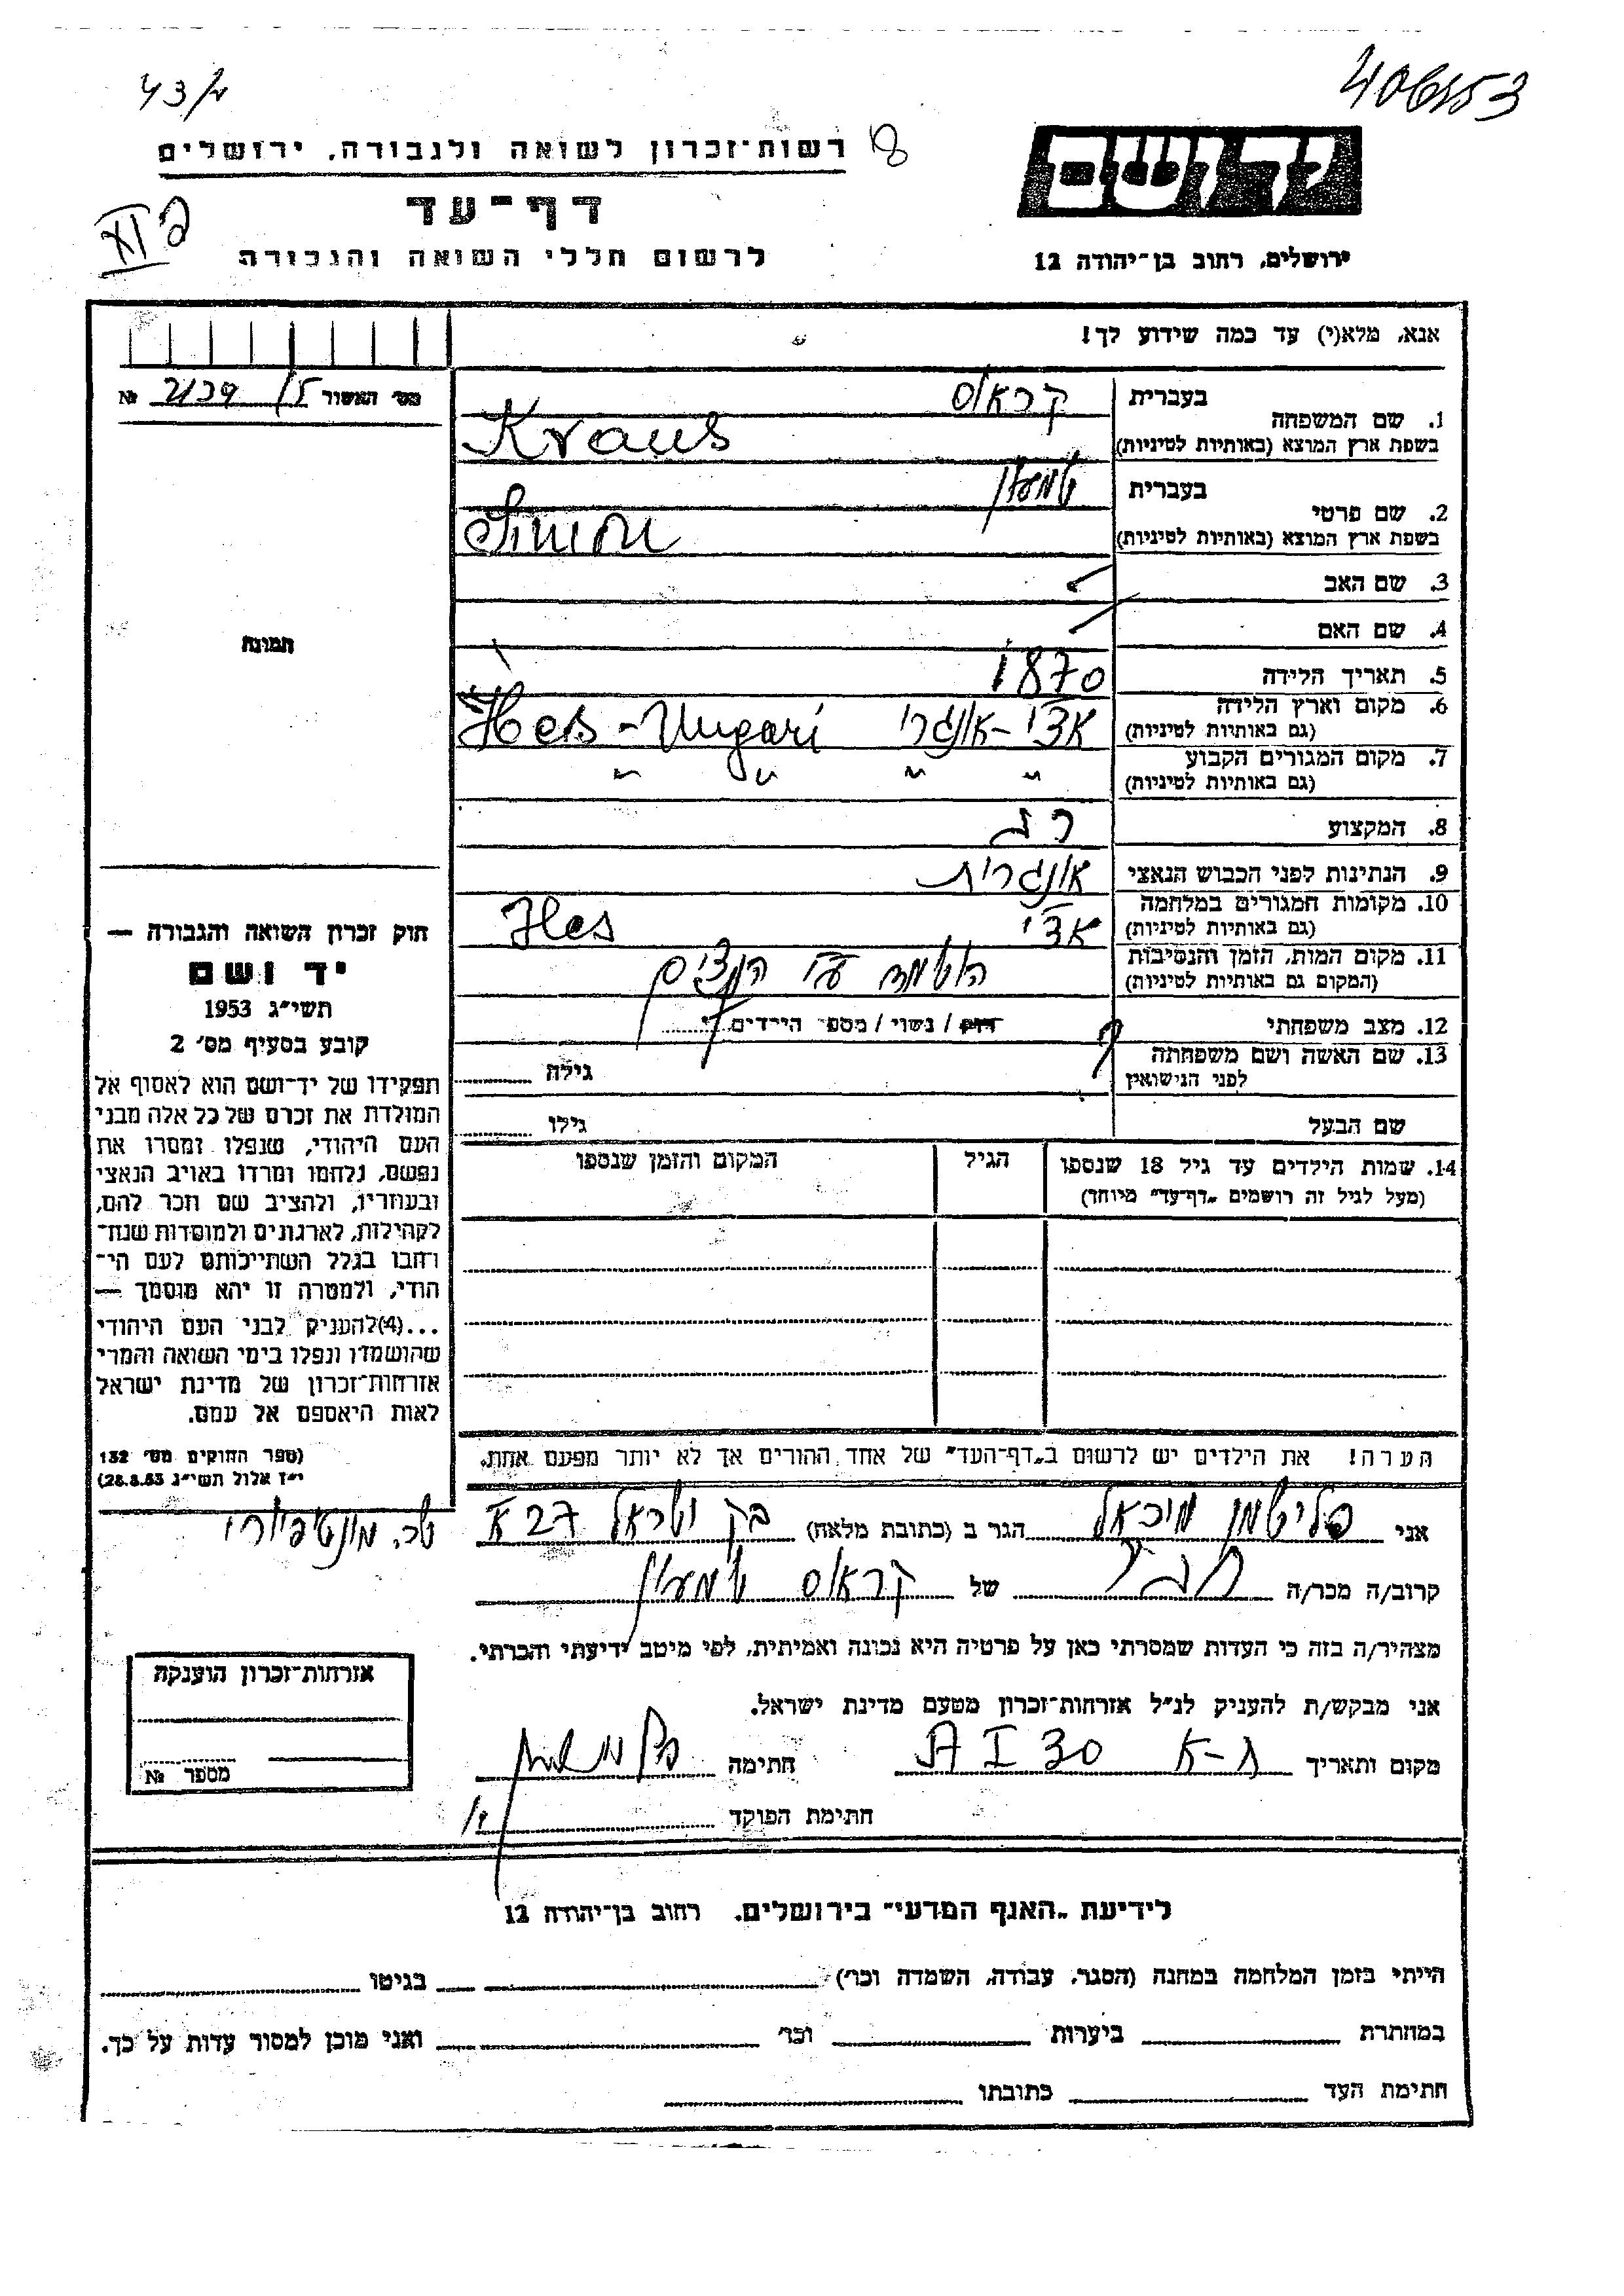 43/2
406553
רשות־זכרון לשואה ולגבורה, ירושלים
דף־עד
לרשום חללי השואה והגבורה
ידושם
ירושלים, רחוב בן־יהודה 12
אנא, מלא(י) עד כמה שידוע לך!
מס׳ האשור № 2139
1. שם המשפחה בעברית קראוס
בשפת ארץ המוצא (באותיות לטיניות) Kraus
2. שם פרטי בעברית שמעון
בשפת ארץ המוצא (באותיות לטיניות) Simon
3. שם האב
4. שם האם
5. תאריך הלידה 1870
6. מקום וארץ הלידה
(גם באותיות לטיניות) אצ'י-אונגרי -Ungari
7. מקום המגורים הקבוע
(גם באותיות לטיניות) " " " "
8. המקצוע רב
9. הנתינות לפני הכבוש הנאצי אונגרית
10. מקומות המגורים במלחמה
(גם באותיות לטיניות) אצ'י
11. מקום המות, הזמן והנסיבות
(המקום גם באותיות לטיניות) הושמד ע״י הנצים
12. מצב משפחתי רווק / נשוי / מספר הילדים
13. שם האשה ושם משפחתה
לפני הנישואין ? גילה
שם הבעל גילו
14. שמות הילדים עד גיל 18 שנספו
(מעל לגיל זה רושמים „דף־עד״ מיוחד)
הגיל
המקום והזמן שנספו
הערה! את הילדים יש לרשום ב„דף־העד״ של אחד ההורים אך לא יותר מפעם אחת.
תמונה
חוק זכרון השואה והגבורה —
יד ושם
תשי״ג 1953
קובע בסעיף מס׳ 2
תפקידו של יד־ושם הוא לאסוף אל
המולדת את זכרם של כל אלה מבני
העם היהודי, שנפלו ומסרו את
נפשם, נלחמו ומרדו באויב הנאצי
ובעוזריו, ולהציב שם וזכר להם,
לקהילות, לארגונים ולמוסדות שנח־
רחבו בגלל השתייכותם לעם הי־
הודי, ולמטרה זו יהא מוסמך —
...(4)להעניק לבני העם היהודי
שהושמדו ונפלו בימי השואה והמרי
אזרחות־זכרון של מדינת ישראל
לאות היאספם אל עמם.
(ספר החוקים מס׳ 132
י״ז אלול תשי״ג 28.8.53)
אני פליישמן מיכאל הגר ב (כתובת מלאה) 27
קרוב/ה מכר/ה חבר של קראוס שמעון
מצהיר/ה בזה כי העדות שמסרתי כאן על פרטיה היא נכונה ואמיתית, לפי מיטב ידיעתי והכרתי.
אני מבקש/ת להעניק לנ״ל אזרחות־זכרון מטעם מדינת ישראל.
מקום ותאריך 30 חתימה
חתימת הפוקד
אזרחות־זכרון הוענקה
מספר №
לידיעת „האגף המדעי״ בירושלים, רחוב בן־יהודה 12
הייתי בזמן המלחמה במחנה (הסגר, עבודה, השמדה וכר׳) בגיטו
במחתרת ביערות וכר׳ ואני מוכן למסור עדות על כך.
חתימת העד כתובתו